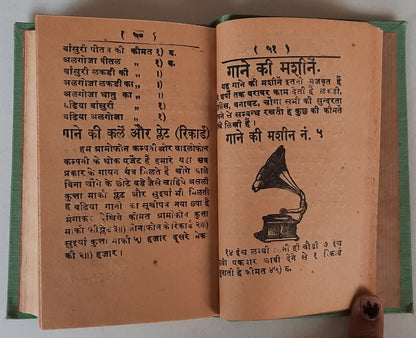 ( ५० )
बांसुरी पीतल की कीमत १) रु.
अलगोजा पीतल „ १) रु.
बांसुरी लकड़ी की „
अलगोजा लकड़ी का „
अलगोजा धातु का „
बढिया बांसुरी „
बढिया अलगोजा „
गाने की कलें और प्लेट (रिकार्ड)
हम ग्रामोफोन कम्पनी और वाइलोफोन
कम्पनी के थोक एजेंट हैं हमारे यहां सब
प्रकार के गायन यंत्र मिलते हैं चोंगे वाले
बिना चोंगे के छोटे बड़े जैसे चाहिये असली
कुत्ता मार्का प्लेट और सुइयां भी मिलती
हैं बढिया गानों का सूचीपत्र नया छपा है
मंगाकर देखिये कीमत ग्रामोफोन कुत्ता
मार्का फी प्लेट ३॥) के रिकार्ड २॥)
सुइयां कुत्ता मार्का ५) हजार दूसरे मेक
की २॥) हजार।
( ५१ )
गाने की मशीनें.
यह गाने की मशीनें इतनी मजबूत हैं
वर्षों तक बराबर काम देती हैं लकड़ी,
पालिस, बनावट, चोंगा सभी की सुन्दरता
से सम्बन्ध रखती हैं कुछ की कीमतें
लिखी हैं।
गाने की मशीन नं. ५
१४ इंच लम्बी इतनी ही चौड़ी ७ इंच
ऊंची एकबार चाबी देने से १ रिकार्ड
बजाती है कीमत ४५) रु.